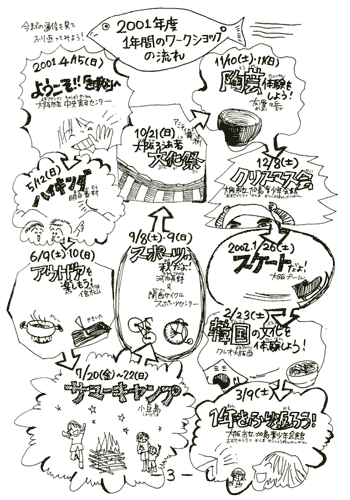 今までの活動を見て
ふり返ってみよう!
2001年度
1年間のワークショップ
の流れ
2001.4/15(日)
ようこそ!!
大阪市立 中央青年センター
5/12(日)
ハイキング
明日香村
6/9(土)・10(日)
アウトドアを
楽しもう!
7/20(金)~22(日)
サマーキャンプ
小豆島
9/8(土)・9(日)
スポーツの
秋だよ!
河内長野
関西サイクル
スポーツセンター
10/21(日)
大阪ろうあ者
文化祭
11/10(土)・18(日)
陶芸体験を
しよう!
12/8(土)
クリスマス会
大阪市立加島青少年会館
2002.1/26(土)
スケートだよ!
大阪プール
2/23(土)
韓国の文化を
体験しよう!
クレオ大阪西
3/9(土)
1年をふり返ろう!
大阪市立加島青少年会館
3